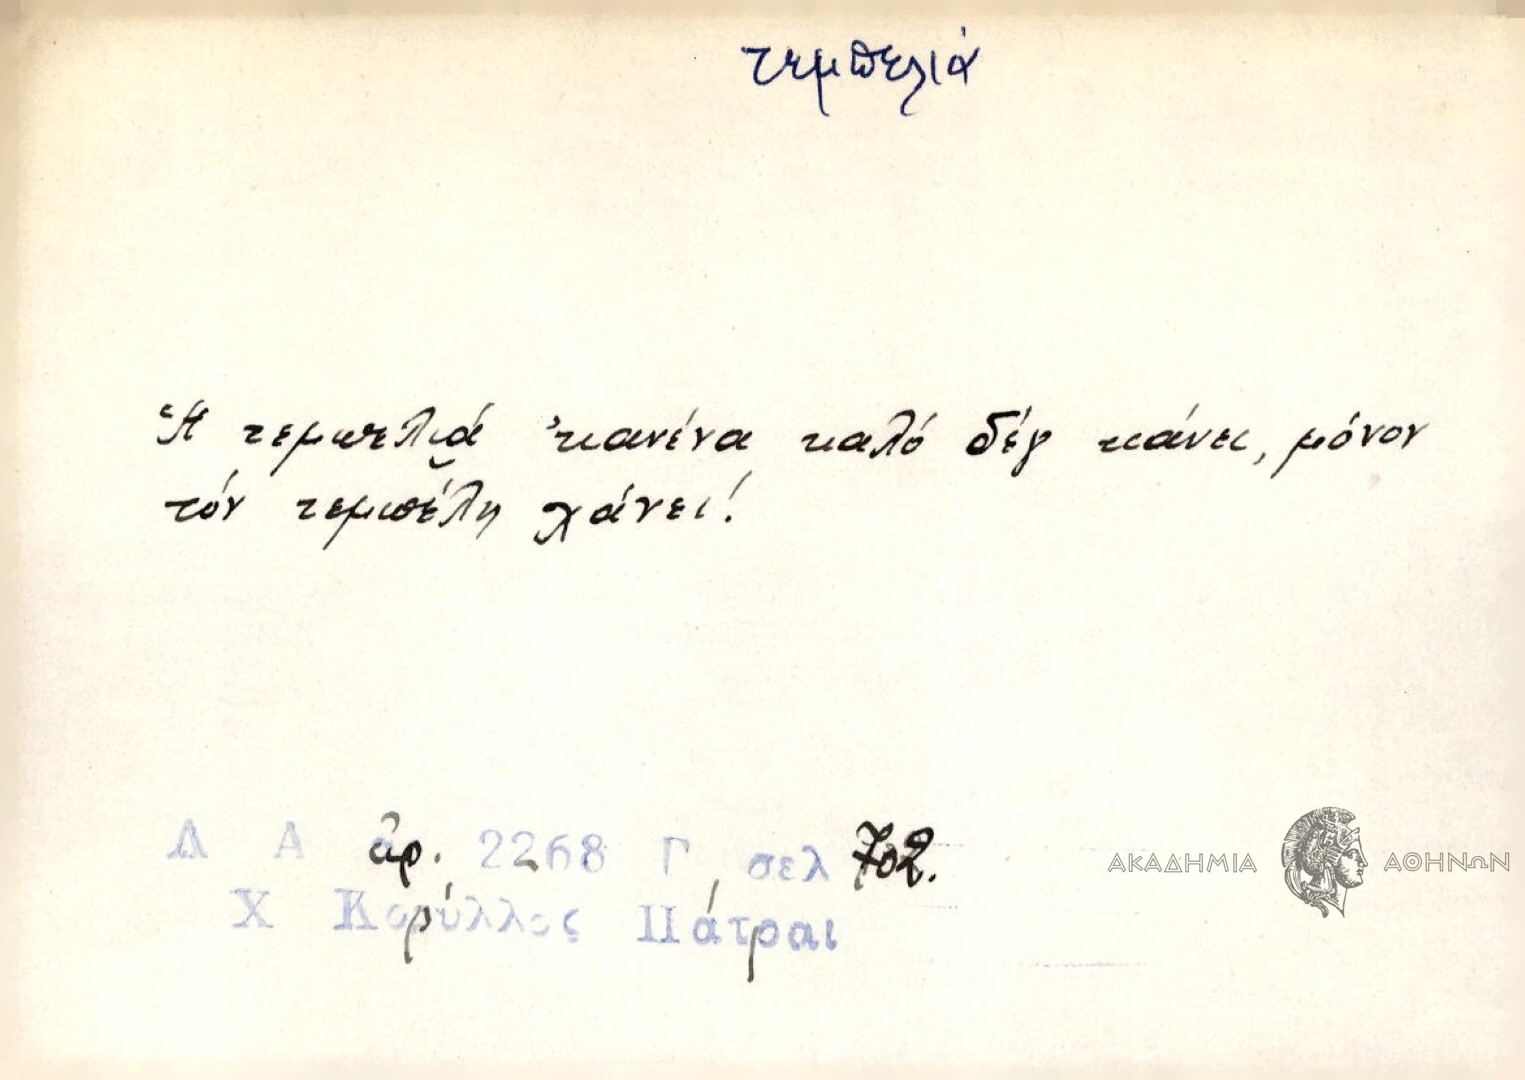 τεμπελιά
Ἡ τεμπελιά κανένα καλό δέν κάνει, μόνον
τόν τεμπέλη χάνει!
Λ Α ἀρ. 2268 Γ, σελ 702.
Χ Κορύλλος Πάτραι
ΑΚΑΔΗΜΙΑ ΑΘΗΝΩΝ